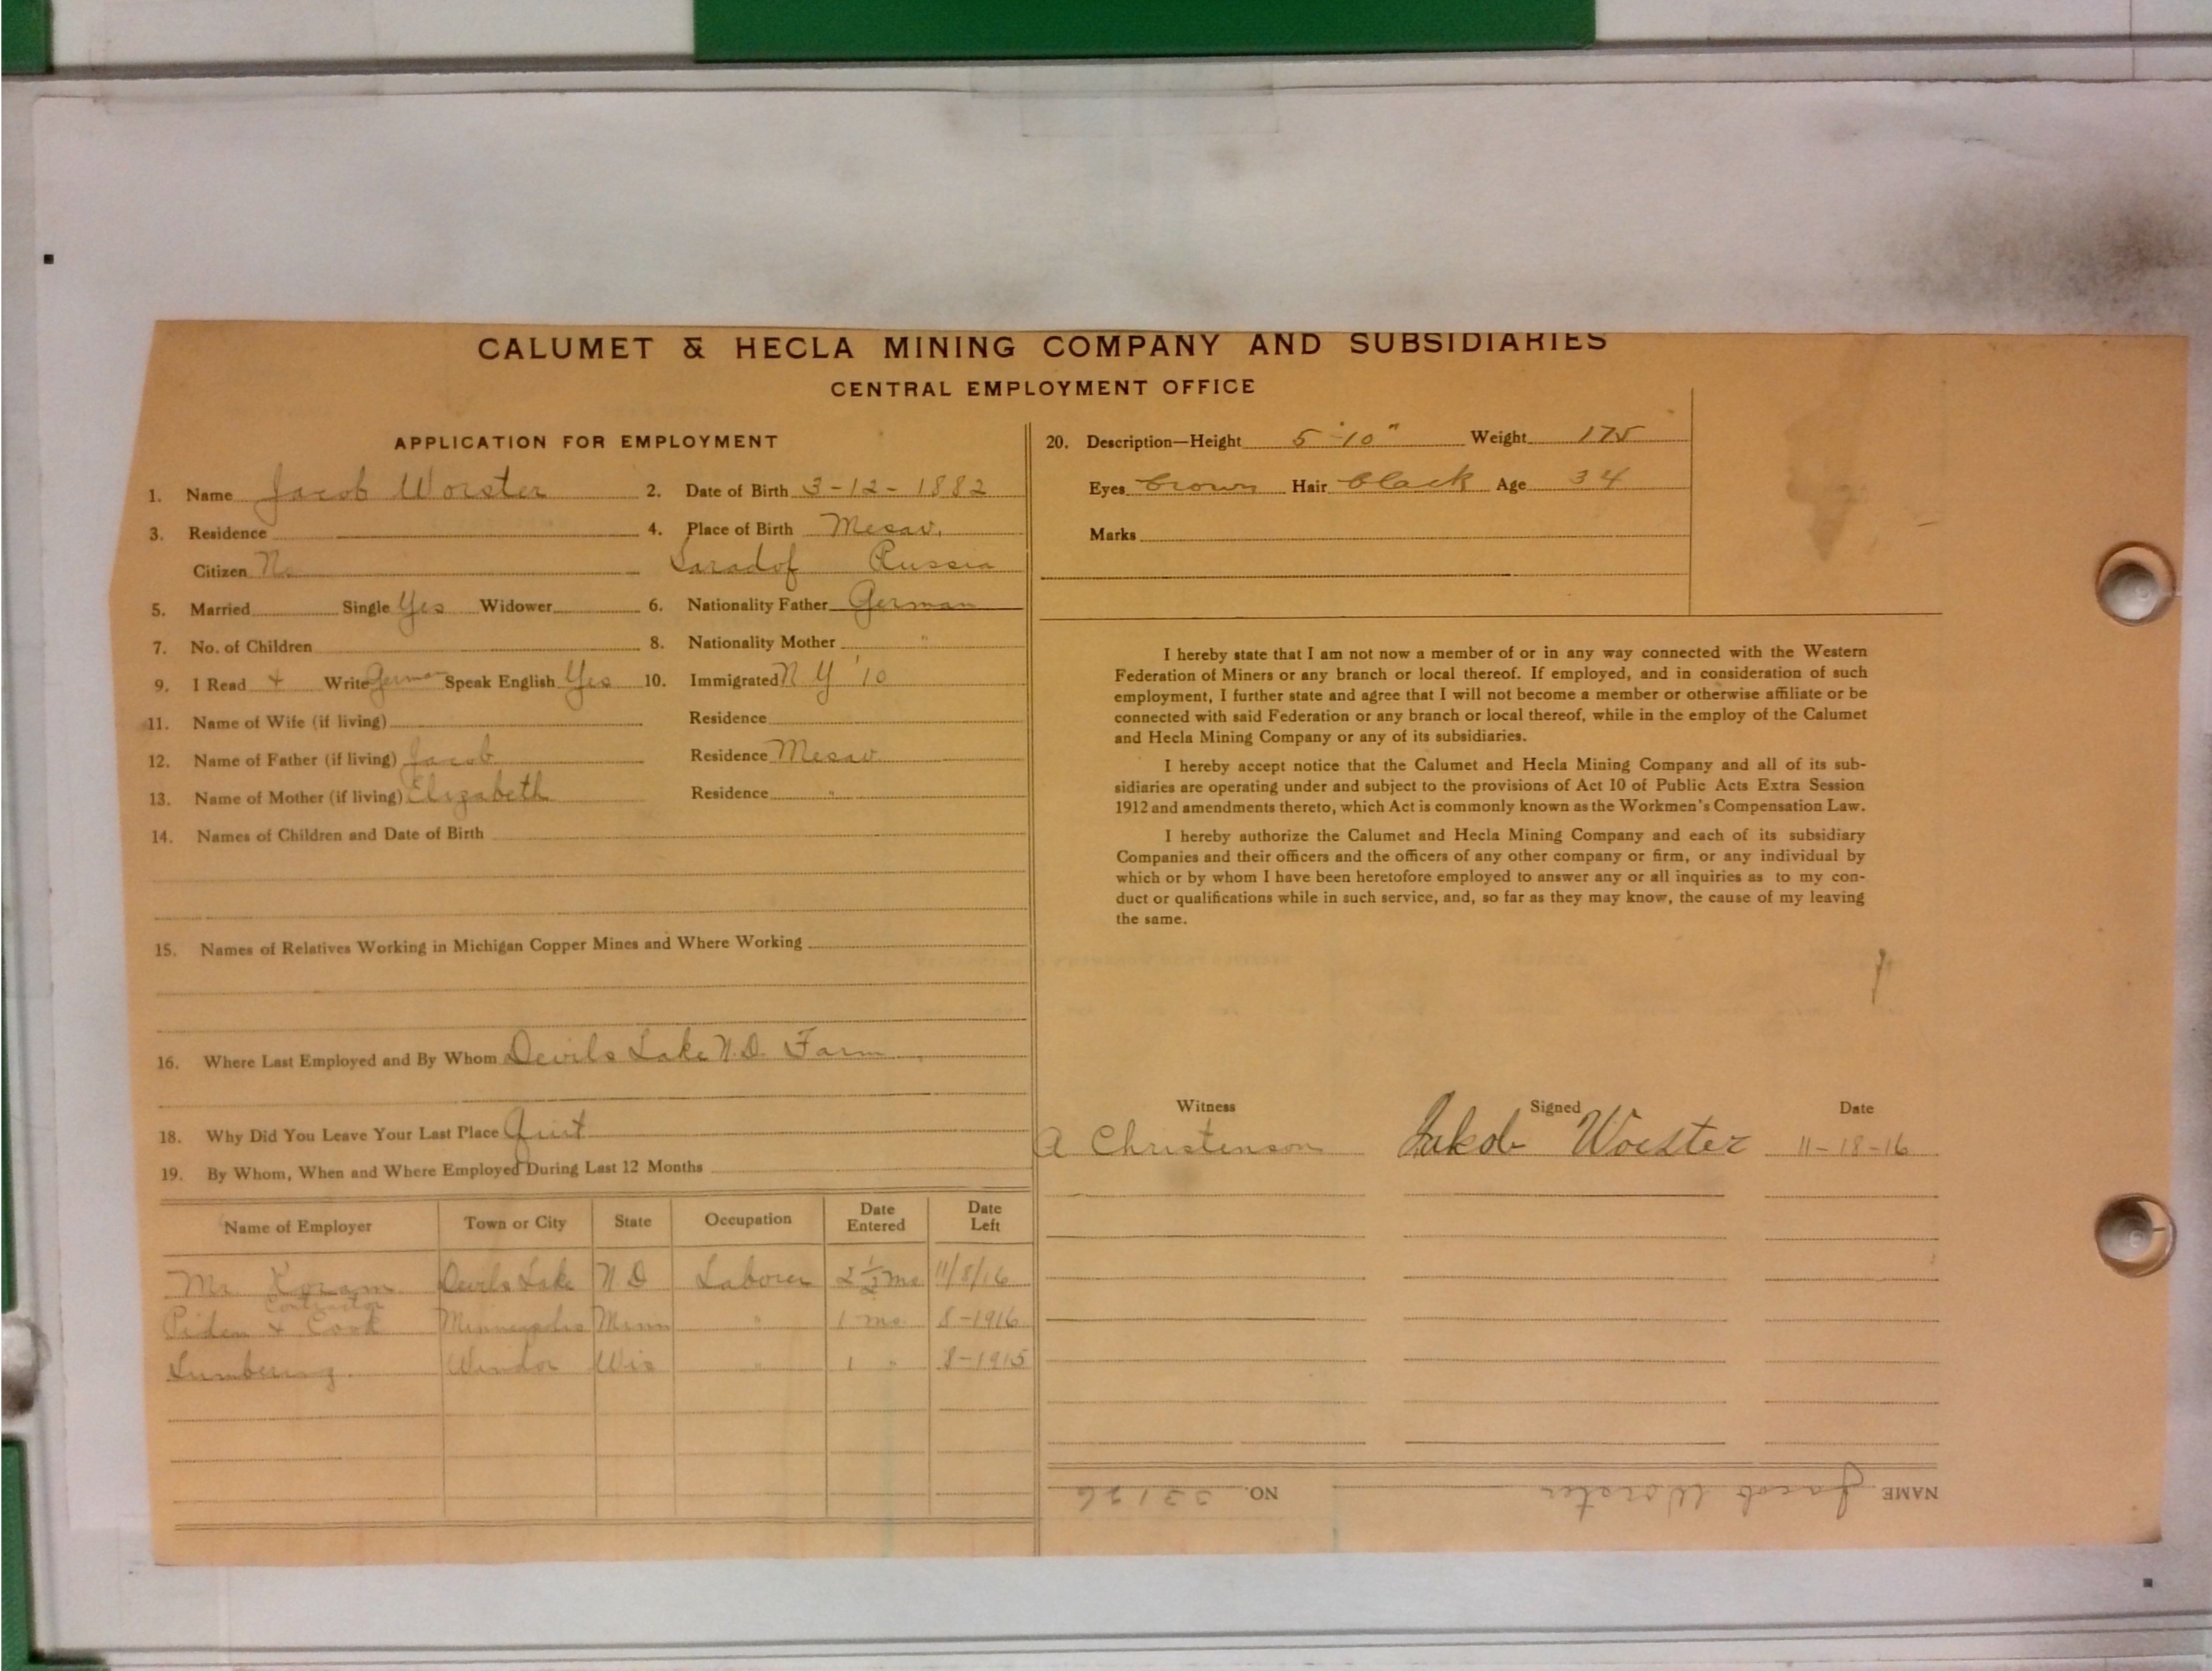 CALUMET & HECLA MINING COMPANY AND SUBSIDIARIES
CENTRAL EMPLOYMENT OFFICE
APPLICATION FOR EMPLOYMENT
1. Name Jacob Worster 2. Date of Birth 3-12-1882
3. Residence 4. Place of Birth Mesav,
Citizen No Saradof Russia
5. Married Single Yes Widower 6. Nationality Father German
7. No. of Children 8. Nationality Mother "
9. I Read + Write German Speak English Yes 10. Immigrated N Y '10
11. Name of Wife (if living) Residence
12. Name of Father (if living) Jacob Residence Mesav
13. Name of Mother (if living) Elizabeth Residence "
14. Names of Children and Date of Birth
15. Names of Relatives Working in Michigan Copper Mines and Where Working
16. Where Last Employed and By Whom Devils Lake N.D. Farm
18. Why Did You Leave Your Last Place Quit
19. By Whom, When and Where Employed During Last 12 Months
Name of Employer Town or City State Occupation Date Entered Date Left
Mr Devils Lake N D Laborer 2 1/2 mo 11/8/16
Contractor
& Cook Minneapolis Minn " 1 mo 8-1916
Lumbering Wis " 1 " 8-1915
20. Description—Height 5'10" Weight 175
Eyes brown Hair black Age 34
Marks
I hereby state that I am not now a member of or in any way connected with the Western
Federation of Miners or any branch or local thereof. If employed, and in consideration of such
employment, I further state and agree that I will not become a member or otherwise affiliate or be
connected with said Federation or any branch or local thereof, while in the employ of the Calumet
and Hecla Mining Company or any of its subsidiaries.
I hereby accept notice that the Calumet and Hecla Mining Company and all of its sub-
sidiaries are operating under and subject to the provisions of Act 10 of Public Acts Extra Session
1912 and amendments thereto, which Act is commonly known as the Workmen's Compensation Law.
I hereby authorize the Calumet and Hecla Mining Company and each of its subsidiary
Companies and their officers and the officers of any other company or firm, or any individual by
which or by whom I have been heretofore employed to answer any or all inquiries as to my con-
duct or qualifications while in such service, and, so far as they may know, the cause of my leaving
the same.
Witness Signed Date
A Christenson Jakob Worster 11-18-16
NAME Jacob Worster NO.